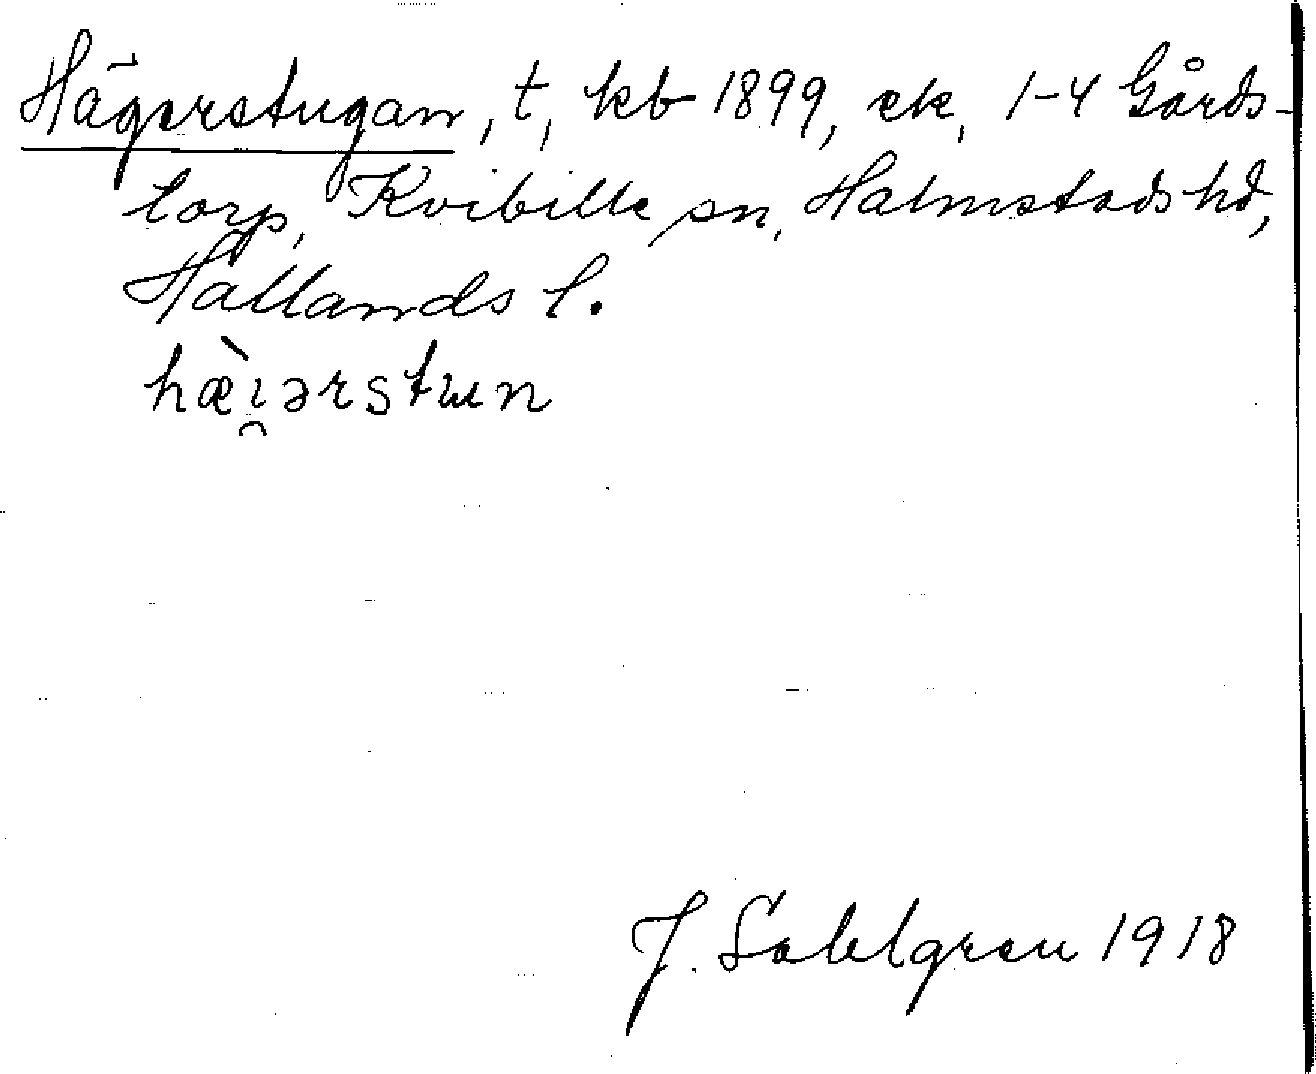 Hägerstugan, t, kb 1899, ek, 1-4 Gårds-
torp, Kvibille sn, Halmstads hd,
Hallands l.
hæ̀i̯ərstɯn
J. Sahlgren 1918